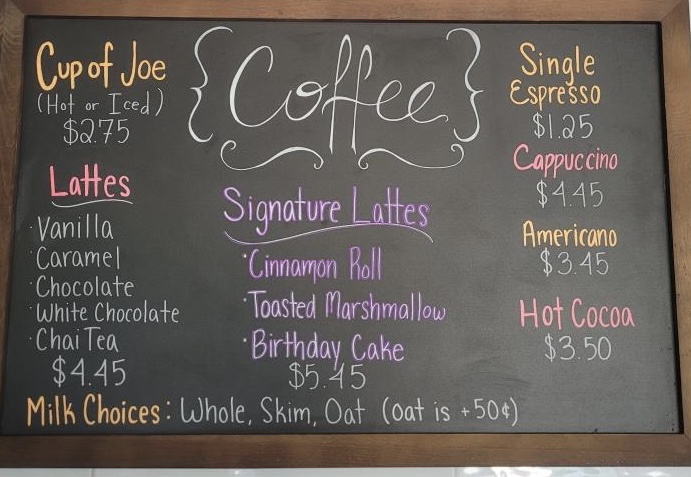 Cup of Joe
(Hot or Iced)
$2.75
Lattes
· Vanilla
· Caramel
· Chocolate
· White Chocolate
· Chai Tea
$4.45
{Coffee}
Signature Lattes
· Cinnamon Roll
· Toasted Marshmallow
· Birthday Cake
$5.45
Single
Espresso
$1.25
Cappuccino
$4.45
Americano
$3.45
Hot Cocoa
$3.50
Milk Choices: Whole, Skim, Oat (oat is +50¢)